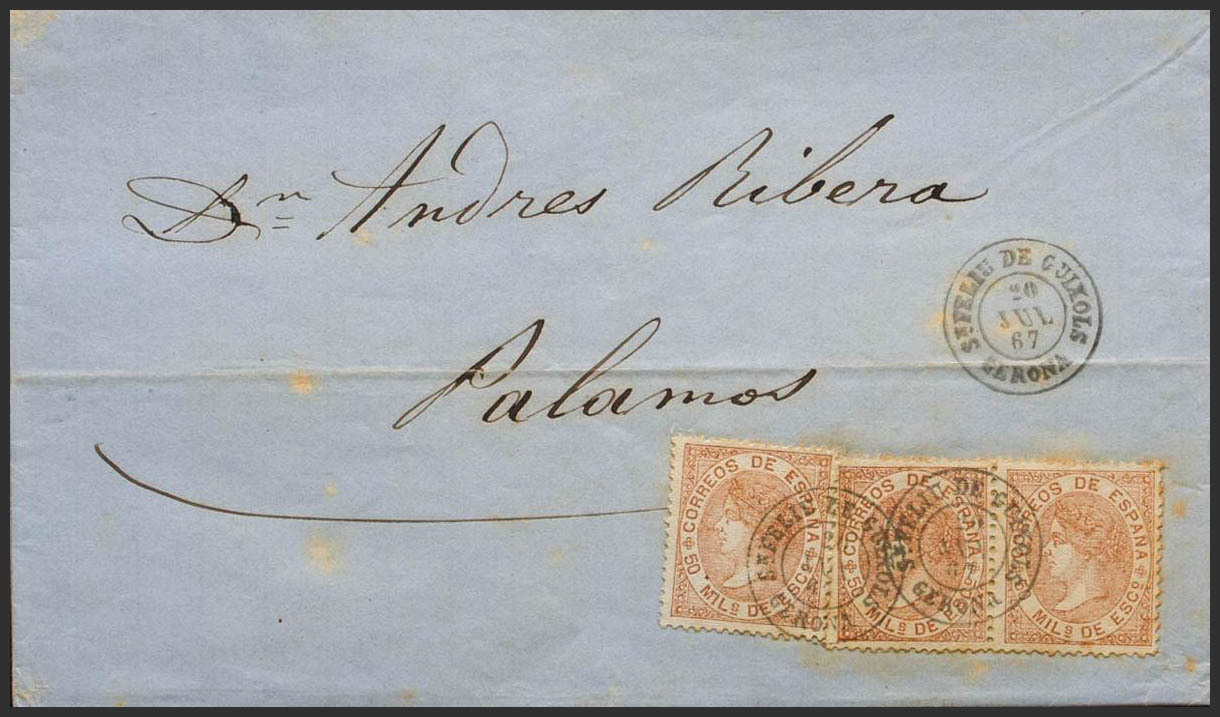 Dn Andres Ribera
Palamos
Sn FELIU DE GUIXOLS
20
JUL
67
GERONA
CORREOS DE ESPAÑA
50 MILs DE ESCo
CORREOS DE ESPAÑA
50 MILs DE ESCo
CORREOS DE ESPAÑA
MILs DE ESCo